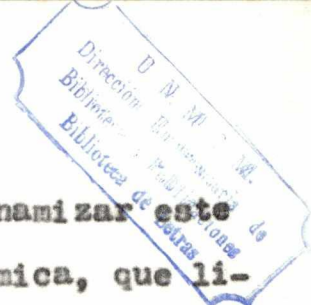 U. N. M. S. M.
Dirección
de
Biblioteca y Publicaciones
Biblioteca de Letras
namizar este
mica, que li-